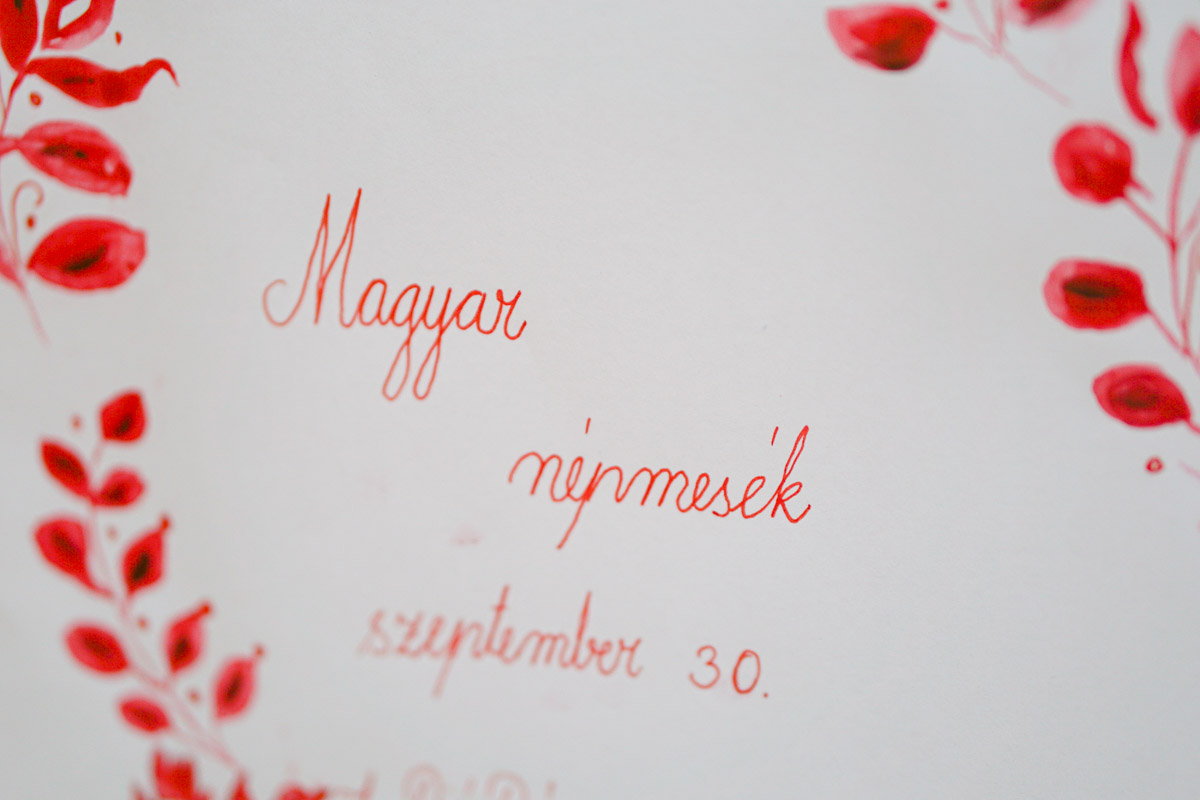 Magyar
népmesék
szeptember 30.